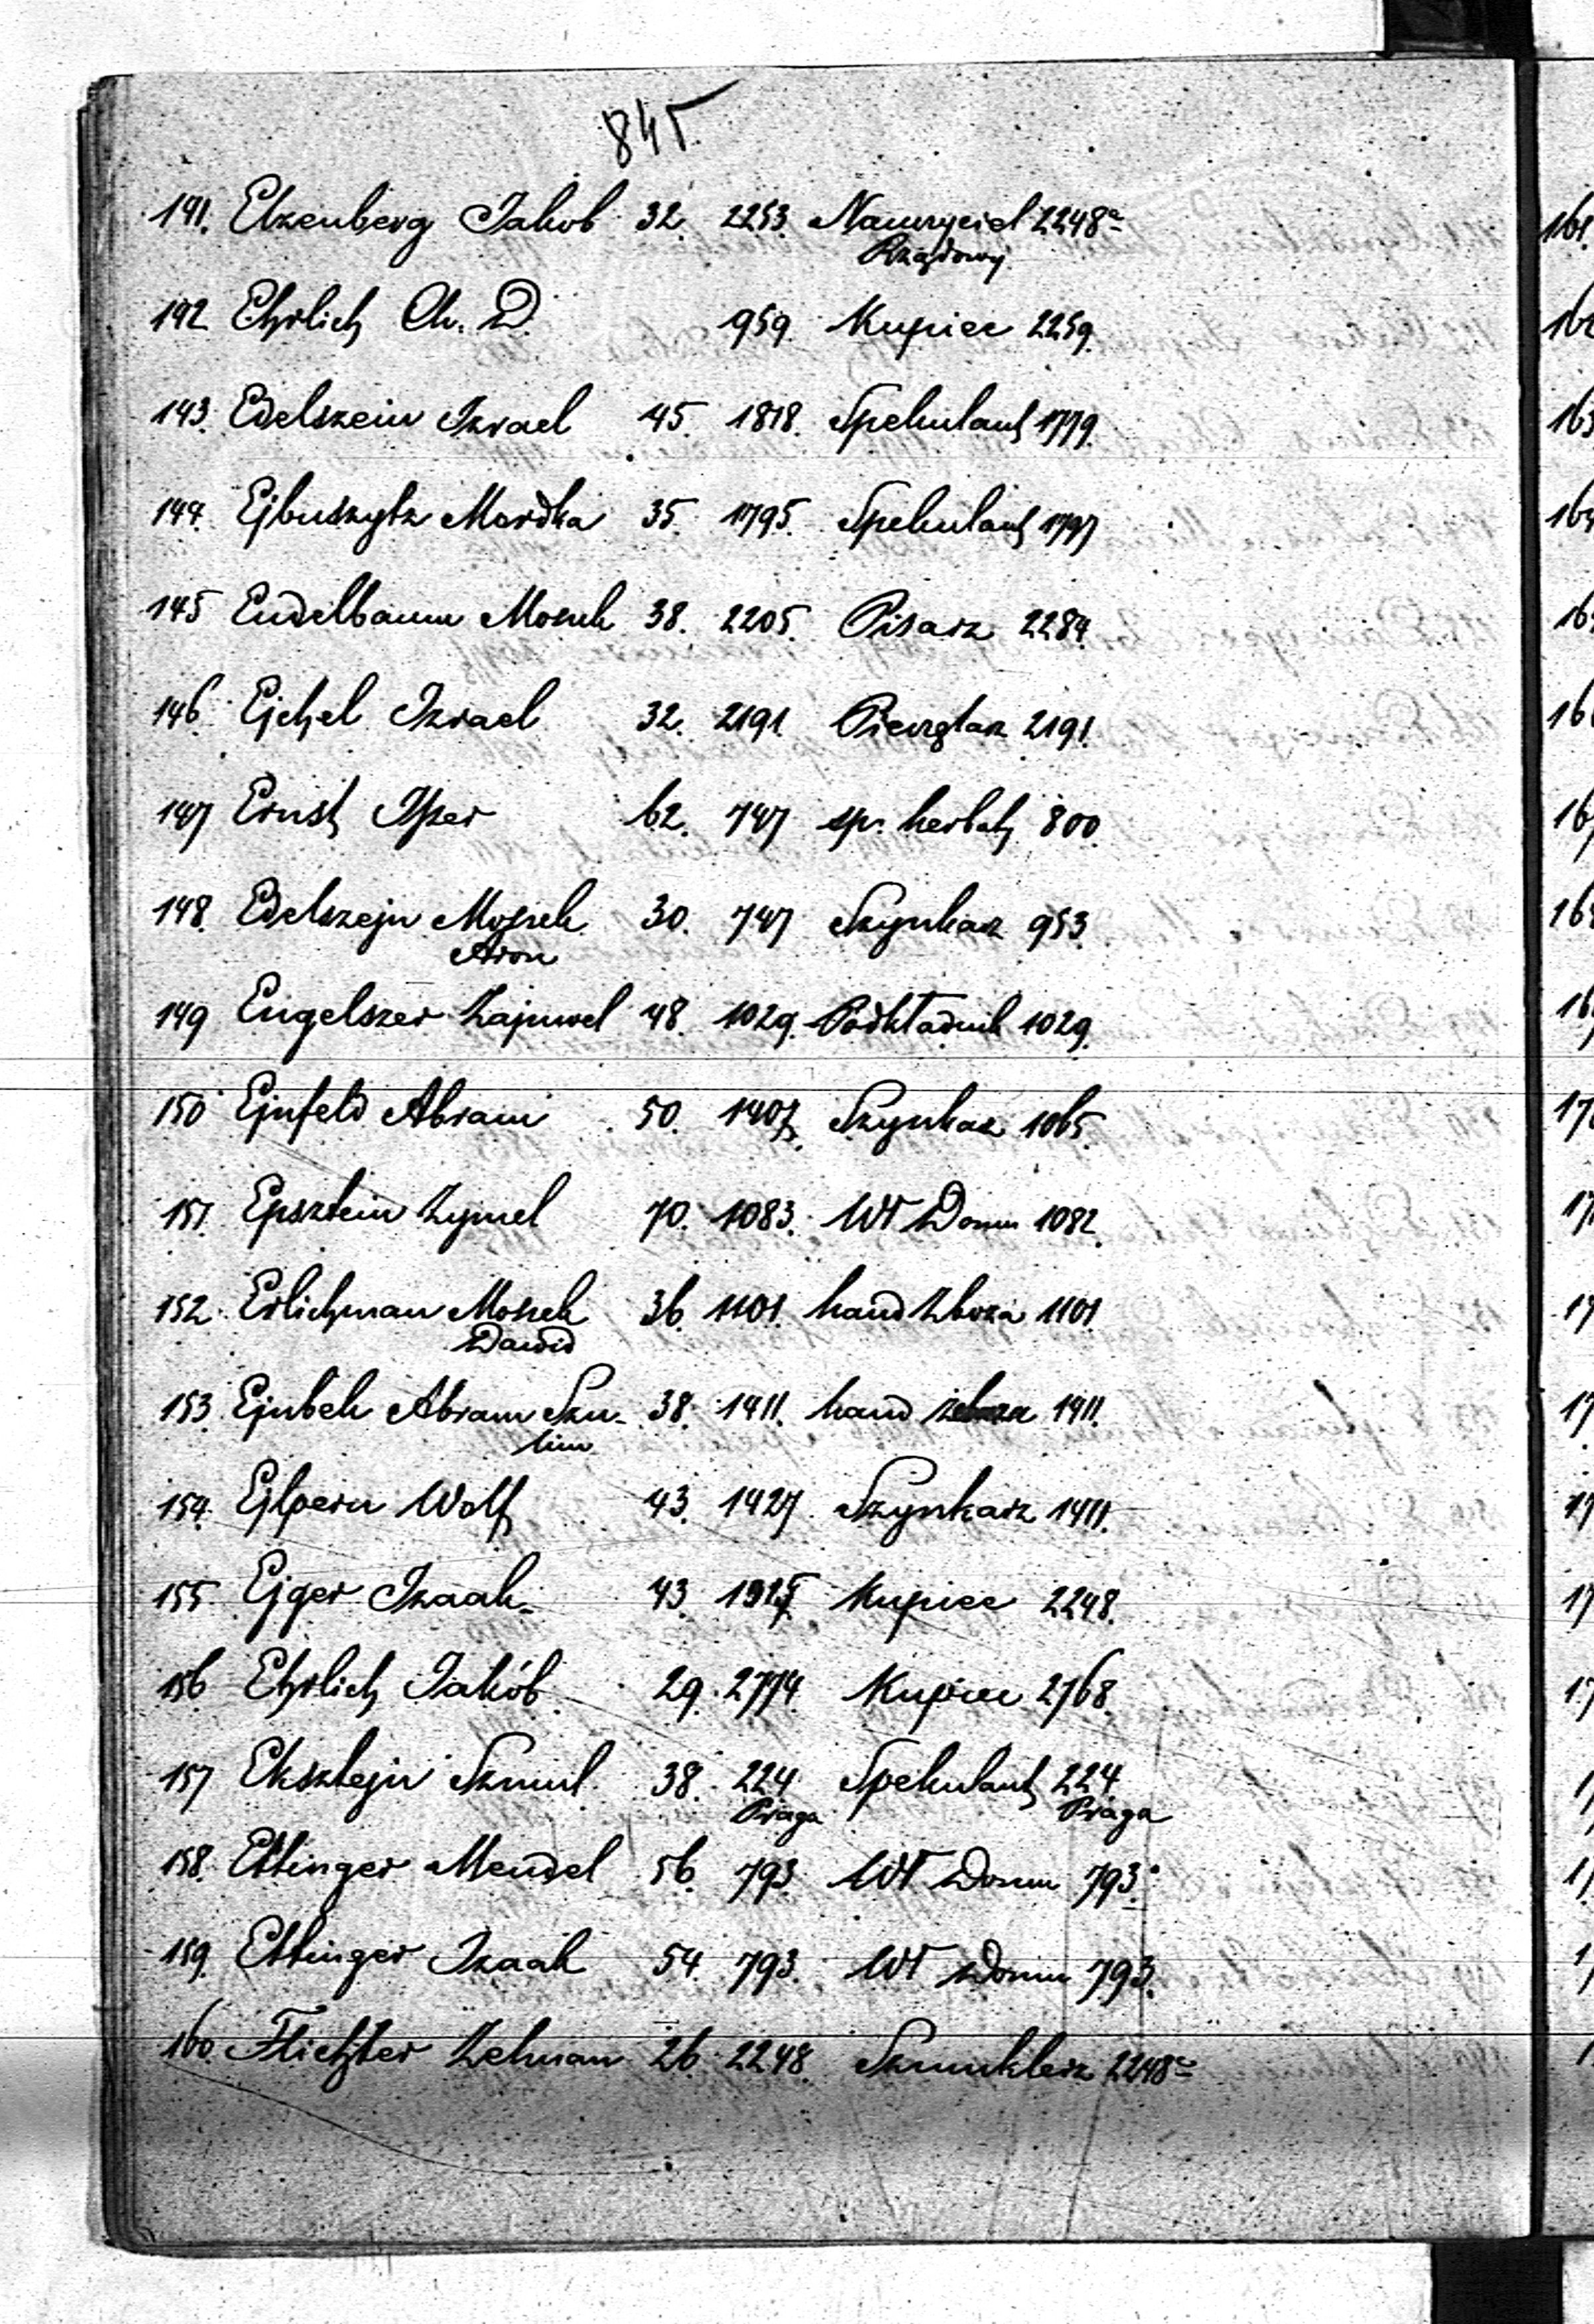 845.
141. Elzenberg Jakob 32. 2253. Nauczyciel 2248a
Rządowy
142 Ehrlich Ch. D. 959. Kupiec 2259.
143. Edelszein Izrael 45. 1818. Spekulant 1779.
144. Ejbuszytz Mordka 35. 1795. Spekulant 1797
145 Eudelbaum Moszek 38. 2205. Pisarz 2284.
146. Ejchel Izrael 32. 2191. Pierglarz 2191.
147 Ernst Isser 62. 747 sp. herbaty 800.
148. Edelszejn Moszek 30. 747 Szynkarz 953.
Aron
149 Engelszer Zajnwel 48. 1029. Podkładnik 1029.
150 Ejnfeld Abram 50. 1407. Szynkarz 1065.
151. Epsztein Zymel 70. 1083. Wł Domu 1082.
152. Erlichman Moszek 36. 1101. hand Zboża 1101
Dawid
153. Ejnbek Abram Szu- 38. 1411. hand żelaza 1411.
lim
154. Ejlpern Wolf 43. 1427 Szynkarz 1411.
155. Ejger Izaak 43. Kupiec 2248.
156 Ehrlich Jakób 29. 2774. Kupiec 2768.
157 Eksztejn Szmul 38. 224 Spekulant 224
Praga Praga
158. Ettinger Mendel 56. 793 Wł Domu 793.
159. Ettinger Izaak 54 793. Wł Domu 793.
160. Flichter Zelman 26. 2248. Szmuklerz 2248a